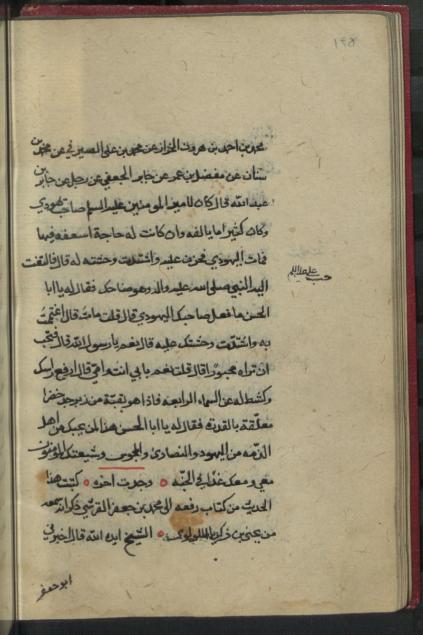 محمد بن احمد بن هرون الخزاز عن محمد بن علي الصيرفي عن محمد بن
سنان عن مفضل بن عمر عن جابر الجعفي عن رجل عن جابر بن
عبد الله قال كان لامير المومنين عليه السلم صاحب يهودي
وكان كثيرا ما يالفه وان كانت له حاجة اسعفه فيها
فمات اليهودي فحزن عليه واشتدت وحشته له قال فالتفت
اليه النبي صلى الله عليه واله وهو ضاحك فقال له يا ابا
الحسن ما فعل صاحبك اليهودي قال قلت مات قال اغتممت
به واشتدت وحشتك عليه قال نعم يا رسول الله قال فتحب
ان تراه محبورا قال قلت نعم بابي انت وامي قال ارفع راسك
وكشط له عن السماء الرابعه فاذا هو بقبة من زبرجد خضرا
معلقة بالقدرة فقال له يا ابا الحسن هذا لمن يحبك من اهل
الذمه من اليهود والنصارى والمجوس وشيعتك المومنون
معي ومعك غدا في الجنه وجدت اخره كتبت هذا
الحديث من كتاب رفعه الى محمد بن جعفر القرشي ذكر انه سمعه
من يحيى بن زكريا اللولوي الشيخ ايده الله قال اخبرني
ابو جعفر